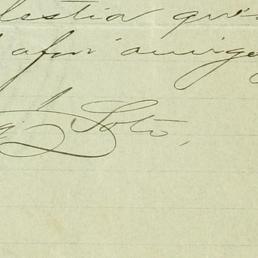 lestia que
afmo amigo
Soto,